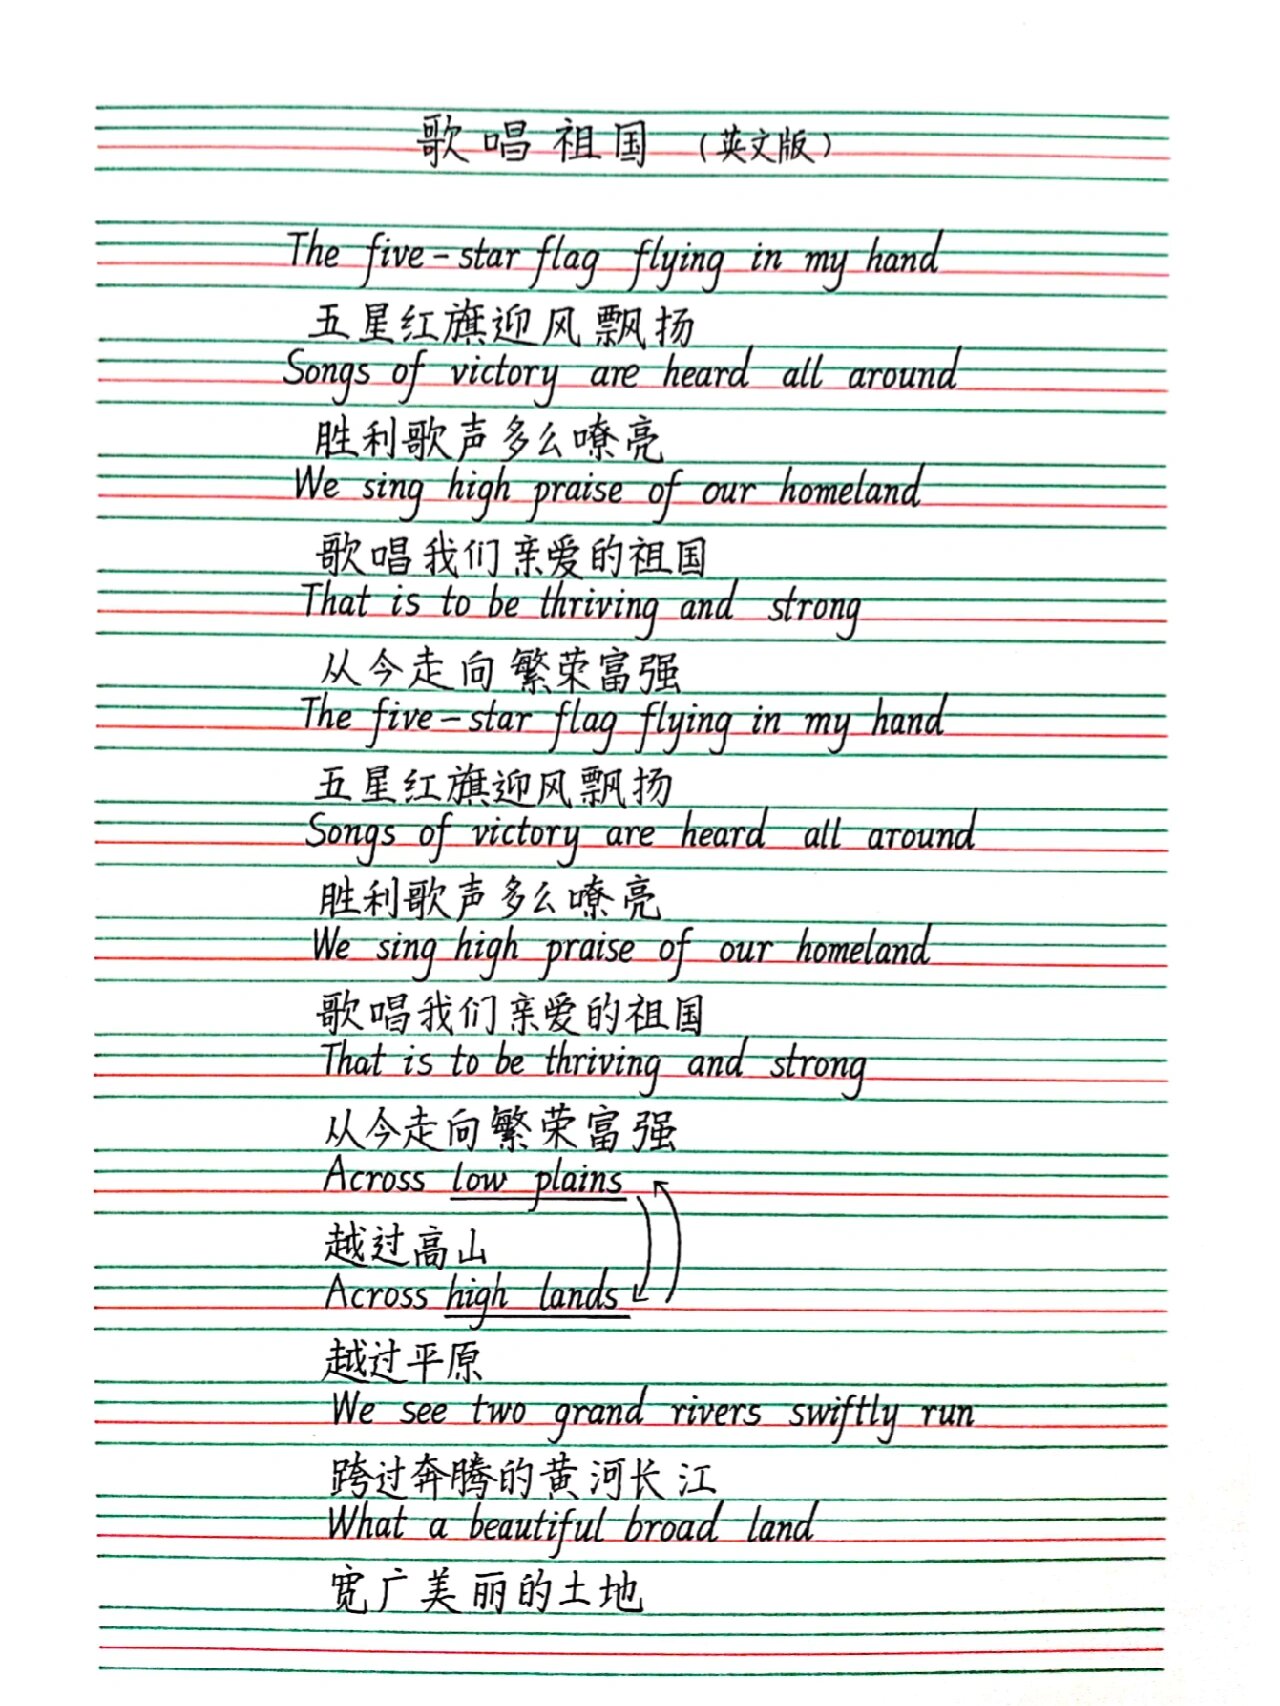 歌唱祖国 （英文版）
The five-star flag flying in my hand
五星红旗迎风飘扬
Songs of victory are heard all around
胜利歌声多么嘹亮
We sing high praise of our homeland
歌唱我们亲爱的祖国
That is to be thriving and strong
从今走向繁荣富强
The five-star flag flying in my hand
五星红旗迎风飘扬
Songs of victory are heard all around
胜利歌声多么嘹亮
We sing high praise of our homeland
歌唱我们亲爱的祖国
That is to be thriving and strong
从今走向繁荣富强
Across low plains
越过高山
Across high lands
越过平原
We see two grand rivers swiftly run
跨过奔腾的黄河长江
What a beautiful broad land
宽广美丽的土地